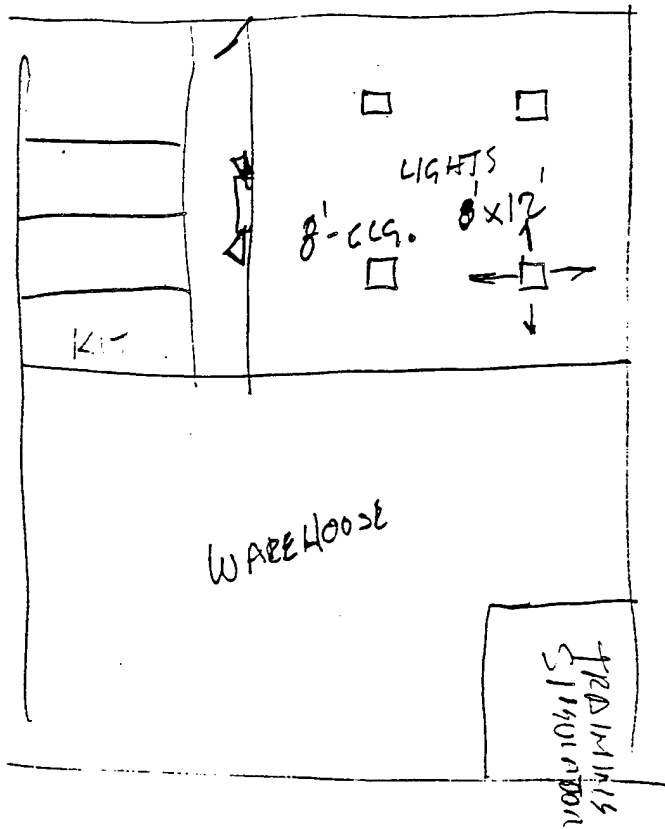 LIGHTS
8'-CLG. 8'x12'
KIT
WAREHOUSE
TRAINING
SIMULATOR